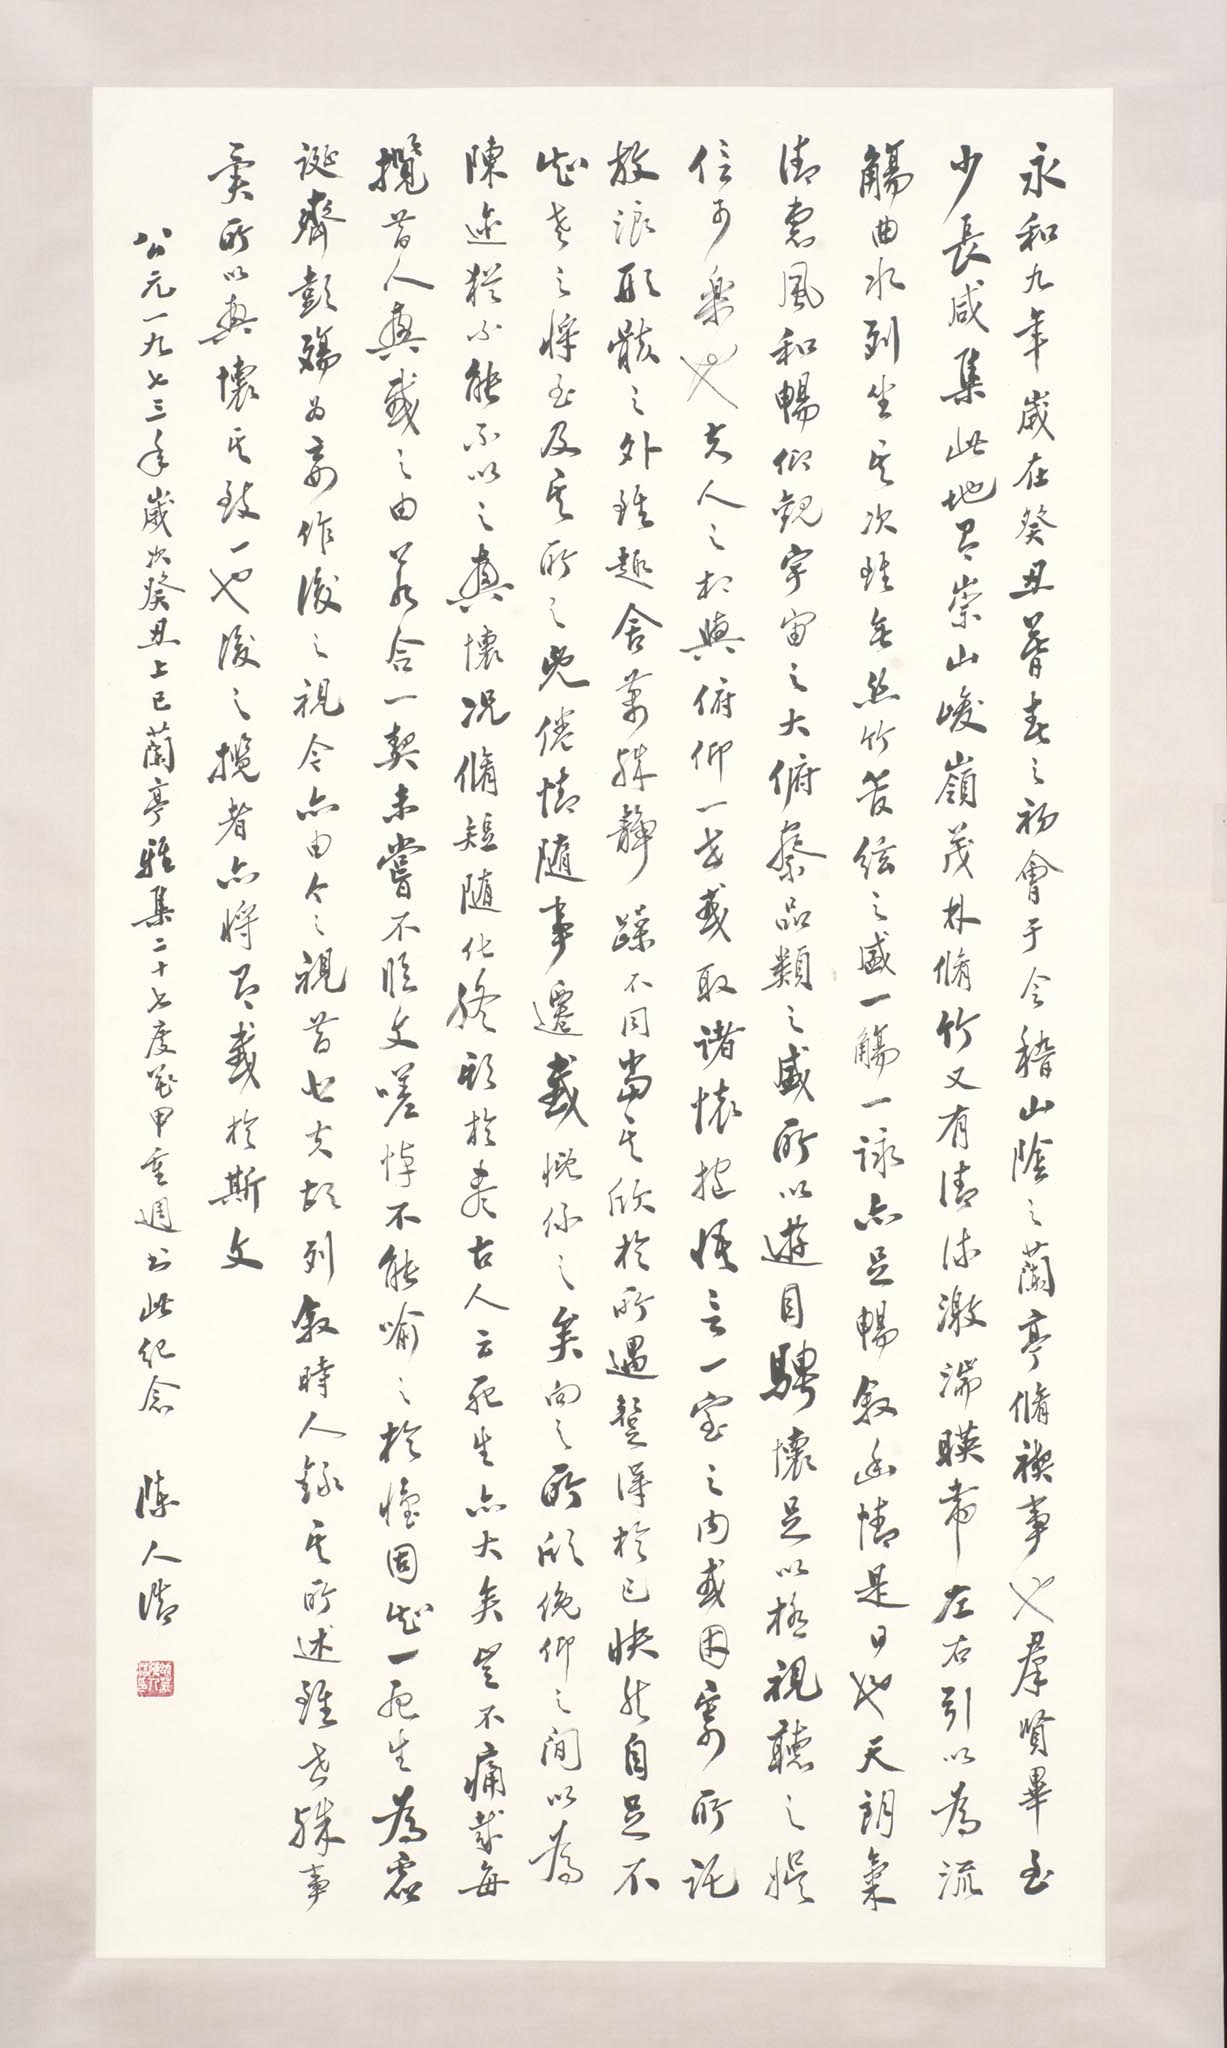 永和九年歲在癸丑暮春之初會于會稽山陰之蘭亭脩禊事也羣賢畢至
少長咸集此地有崇山峻嶺茂林脩竹又有清流激湍暎帶左右引以為流
觴曲水列坐其次雖無絲竹管絃之盛一觴一詠亦足暢敘幽情是日也天朗氣
清惠風和暢仰觀宇宙之大俯察品類之盛所以遊目騁懷足以極視聽之娛
信可樂也夫人之相與俯仰一世或取諸懷抱悟言一室之內或因寄所託
放浪形骸之外雖趣舍萬殊靜躁不同當其欣於所遇蹔得於己快然自足不
知老之將至及其所之既倦情隨事遷感慨係之矣向之所欣俛仰之間以為
陳迹猶不能不以之興懷況脩短隨化終期於盡古人云死生亦大矣豈不痛哉每
攬昔人興感之由若合一契未嘗不臨文嗟悼不能喻之於懷固知一死生為虛
誕齊彭殤為妄作後之視今亦由今之視昔悲夫故列敘時人錄其所述雖世殊事
異所以興懷其致一也後之攬者亦將有感於斯文
公元一九七三年歲次癸丑上巳蘭亭雅集二十七度花甲重週書此紀念 陳人浩